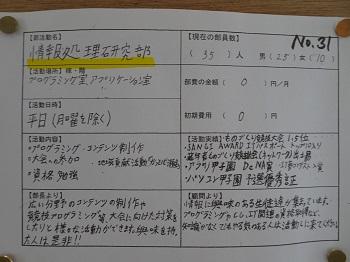 No.31
【部活動名】
情報処理研究部
【現在の部員数】
(35)人 男(25)女(10)
【活動場所】棟・階
プログラミング室、アプリケーション室
部費の金額 ( 0 )円/月
【活動日時】
平日(月曜を除く)
初期費用 ( 0 )円
【活動内容】
・プログラミング・コンテンツ制作
・大会への参加
・地域貢献活動
・資格勉強
【活動実績】・ものづくり競技大会 1,5位
・SANGI AWARD ITパスポート トップクラス
・若年者ものづくり競技会(ネットワーク)出場
・アプリ甲子園 DeNA賞
・パソコン甲子園 予選優秀証
【部長より】
広い分野のコンテンツの制作や
競技プログラミング等、大会に向けた対策を
したりと様々な活動ができます。興味を持っ
た人は是非!!
【顧問より】
情報に興味のある生徒達が集まっています。
プログラミングやCG、IT関連の資格取得など、
知識がなくてもやる気のある人は活動しに来てください。